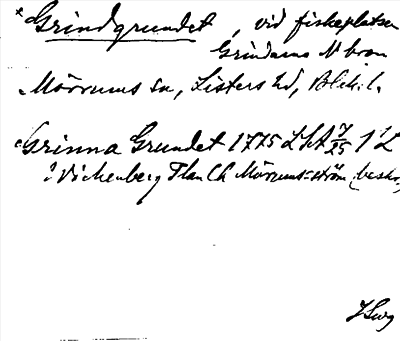 *Grindgrundet, vid fiskeplatsen
Grindarna N bron
Mörrums sn, Listers hd, Blek. l.
Grinna Grundet 1775 LSA 7/25 1:2
: Wickenberg Plan Ch Mörrums-ström (beskr.